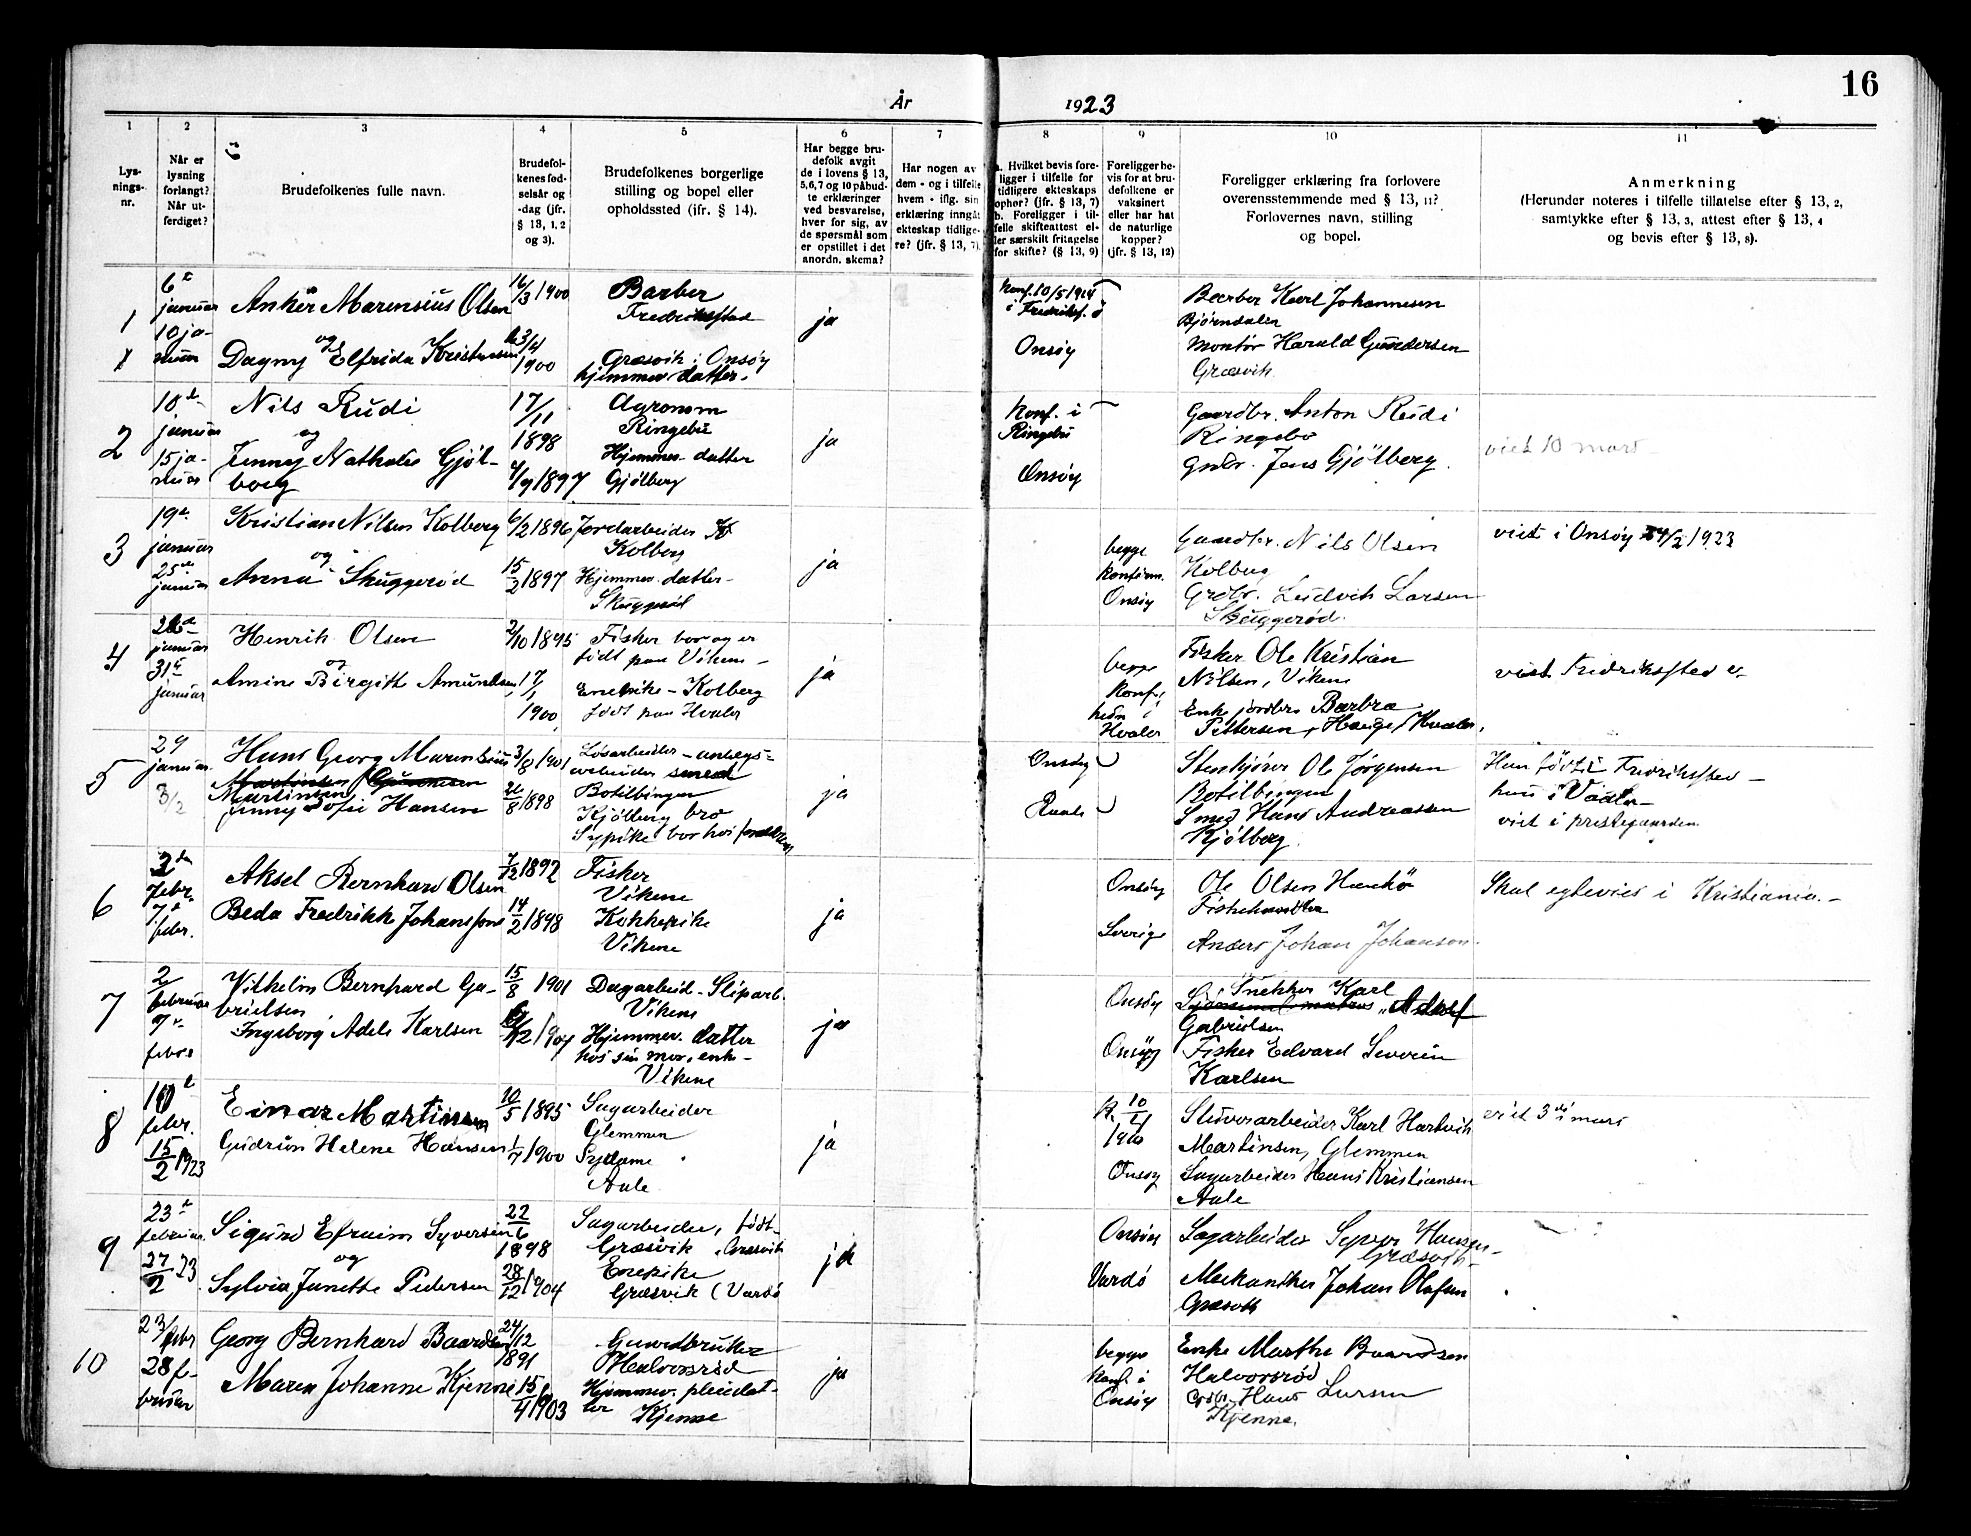 16
År 1923
1 2 3 4 5 6 7 8 9 10 11
Lys-
nings-
nr.
Når er
lysning
forlangt?
Når ut-
ferdiget?
Brudefolkenes fulle navn.
Brudefol-
kenes fød-
selsår og
-dag (jfr.
§ 13, 1, 2
og 3).
Brudefolkenes borgerlige
stilling og bopel eller
opholdssted (ifr. § 14).
Har begge bru-
defolk avgit
de i lovens § 13,
5, 6, 7 og 10 påbud-
te erklæringer
ved besvarelse,
hver for sig, av
de spørsmål som
er opstillet i det
anordn. skema?
Har nogen av
dem - og i tilfelle
hvem - iflg. sin
erklæring inngått
ekteskap tidlige-
re? (jfr. § 13, 7).
a. Hvilket bevis fore-
ligger i tilfelle for
tidligere ekteskaps
ophør? (jfr. § 13, 7)
b. Foreligger i til-
felle skifteattest el-
ler særskilt fritagelse
for skifte? (§ 13, 9)
Foreligger be-
vis for at bru-
defolkene er
vaksinert
eller har hat
de naturlige
kopper?
(jfr. § 13, 12)
Foreligger erklæring fra forlovere
overensstemmende med § 13, 11?
Forlovernes navn, stilling
og bopel.
Anmerkning
(Herunder noteres i tilfelle tillatelse efter § 13, 2,
samtykke efter § 13, 3, attest efter § 13, 4
og bevis efter § 13, 8).
1
6te
januar
10 ja-
nuar
Anker Marensius Olsen
og
Dagny Elfrida Kristensen
16/3 1900
3/4
1900
Barber
Fredrikstad
Græsvik i Onsøy
hjemmev. datter.
ja
Konf. 10/5 1914
i Fredrikst.
Onsøy
Barber Karl Johannesen
Bjørndalen
Montør Harald Gundersen
Græsvik
2
10de
januar
15 ja-
nuar
Nils Rudi
og
Jenny Nathalie Gjøl-
berg
17/11
1898
1897
Agronom
Ringebu
Hjemmev. datter
Gjølberg
ja
Konf. i
Ringebu
Onsøy
Gaardbr. Anton Rudi
Ringebo
Grdbr. Jens Gjølberg.
viet 10 mars
3
19de
januar
25de
januar
Kristian Nilsen Kolberg
og
Anna Skuggerød
6/2 1896
15/2 1897
Jordarbeider
Kolberg
Hjemmev. datter
Skuggerød
ja
begge
konfirm.
Onsøy
Gaardbr. Nils Olsen
Kolberg
Grdbr. Ludvik Larsen
Skuggerød.
viet i Onsøy 24/2 1923
4
januar
31te
januar
Henrik Olsen
og
Amine Birgith Amundsen
2/10 1895
17/1
1900
Fisker bor og er
født paa Vikene
Enepike - Kolberg
født paa Hvaler
ja
begge
konf.
hun i
Hvaler
Fisker Ole Kristian
Nilsen, Vikene
Enke jordbr. Barbra
Pettersen, Hauge, Hvaler.
viet Fredrikstad
5
29
januar
3/2
Hans Georg Marensius
Martinsen
Jenny Sofie Hansen
3/8 1901
26/8 1898
Løsarbeider - anlegs-
arbeider smed
Botilbingen
Kjølberg bro
Sypike bor hos foreldrene
ja
Onsøy
Raade
Stenkjører Ole Jørgensen
Botilbingen
Smed Hans Andreassen
Kjølberg.
Han født i Fredrikstad
hun i Vaaler
viet i prestegaarden.
6
2den
febr.
7de
febr.
Aksel Bernhard Olsen
Beda Fredrikke Johansson
7/12 1892
14/2 1898
Fisker
Vikene
Kokkepike
Vikene
ja
Onsøy
Sverige
Ole Olsen Hankø
Fiskehandler
Anders Johan Johanson.
Skal egtevies i Kristiania.
7
2/
februar
7de
febr.
Vilhelm Bernhard Ga-
brielsen
Ingeborg Adele Karlsen
15/8 1901
1904
Dagarbeid - Sliparb.
Vikene
Hjemmev. datter
hos sin mor, enke
Vikene
ja
Onsøy
Onsøy
Snekker Karl
Adolf
Gabrielsen
Fisker Edvard Severin
Karlsen
8
10de
febr.
15/2 1923
Einar Martinsen
Gudrun Helene Hansen
10/5 1895
1900
Sagarbeider
Glemmen
Sydame
Aale
ja
K. 10/4
1910
Onsøy
Stuverarbeider Karl Hartvik
Martinsen, Glemmen
Sagarbeider Hans Kristiansen
Aale
viet 3de mars
9
23de
februar
27/2 23
Sigurd Efraim Syversen
og
Sylvia Janette Pedersen
22/6
1898
28/12 1904
Sagarbeider, født
Græsvik, Græsvik
Enepike
Græsvik (Vardø
ja
Onsøy
Vardø
Sagarbeider Syver Hansen
Græsvik
Mekaniker Johan Olafsen
Græsvik
10
23/febr
28 fe-
bruar
Georg Bernhard Baardsen
Maren Johanne Kjenne
24/12
1891
15/4 1903
Gaardbruker
Halvorsrød
Hjemmev. pleiedat-
ter
Kjenne
ja
begge
Konf. i
Onsøy
Enke Marthe Baardsen
Halvorsrød
Grdbr. Hans Larsen
Kjenne.